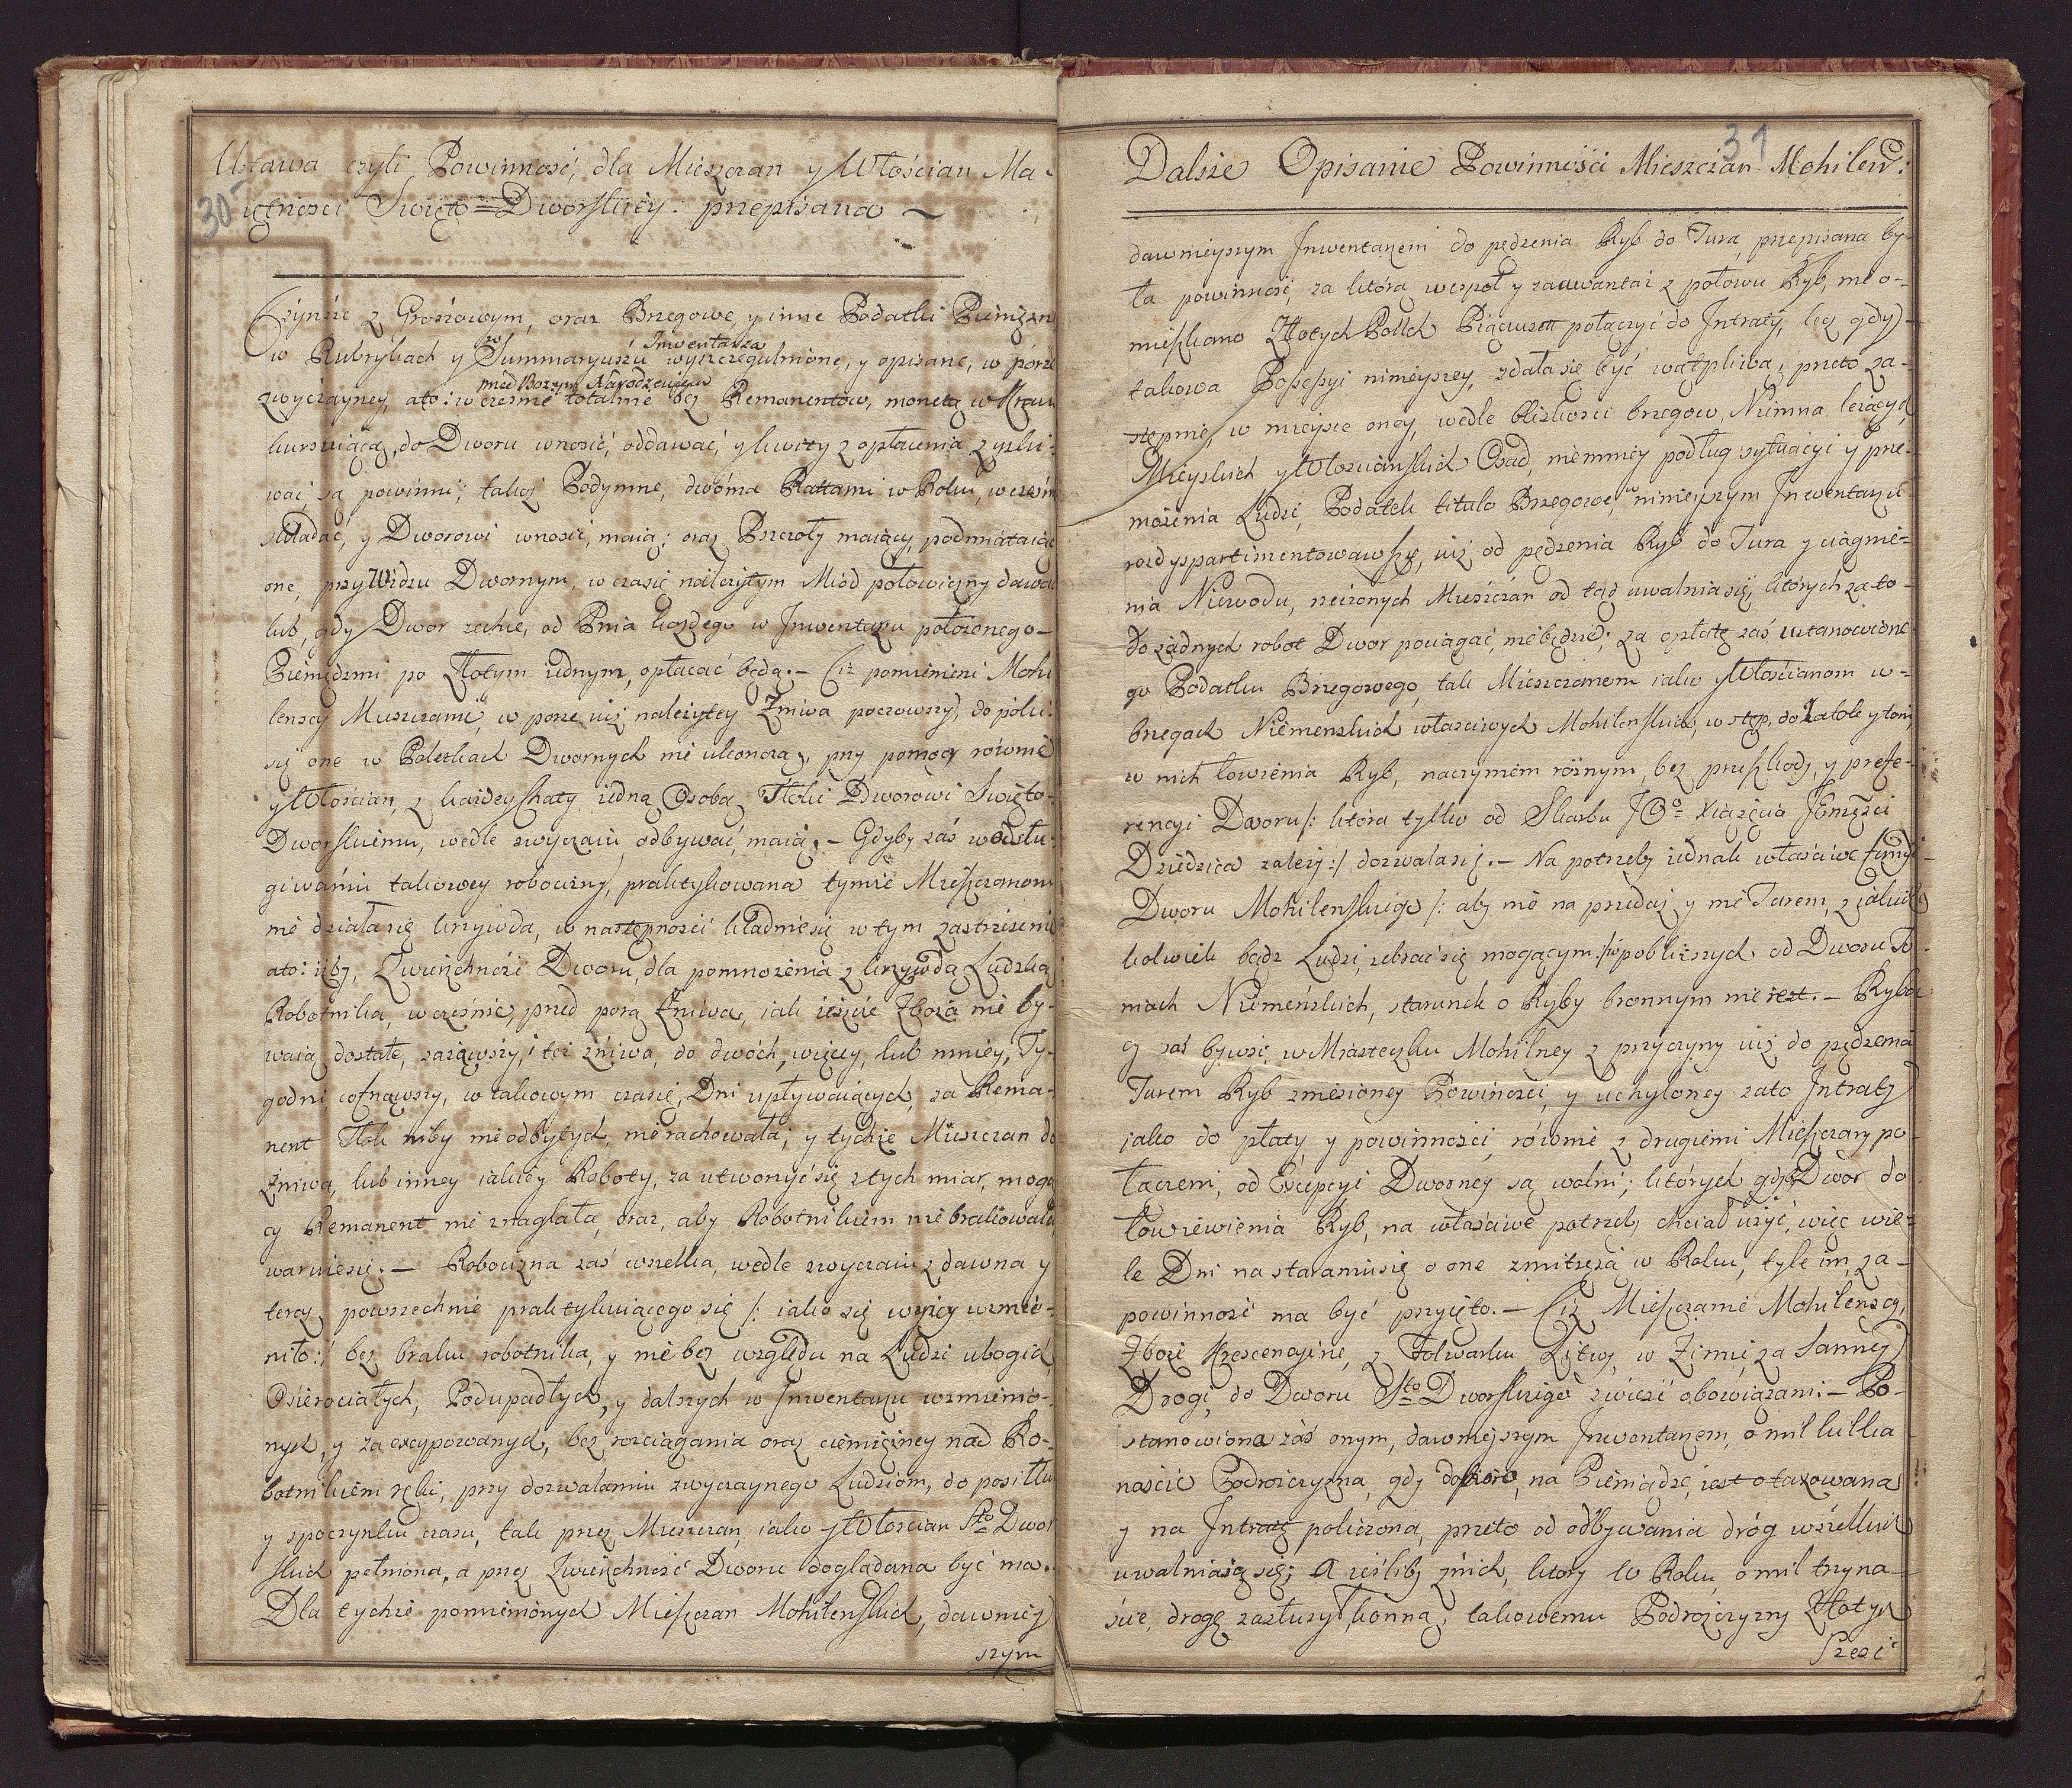 Ustawa czyli Powinność, dla Mieszczan y Włościan Ma-
30
iętności Swięto=Dworskiey. przepisana ~
Czynsze z Groszowym, oraz Brzegowe, y inne Podatki Pieniężne
w Rubrykach y w Summaryuszu Inwentarza wyszczegulnione, y opisane, w porze
zwyczayney, ato: w czesnie przed Bożym Narodzeniem totalnie bez Remanentów, monetą w Kraiu
kursuiącą, do Dworu wnosić, oddawać, y kwity z opłacenia zyski-
wać są powinni; takoż Podymne, dwóma Rattami w Roku, wcześnie
składać, y Dworowi wnosić, maią; oraz Pszczoły maiący, podmiataiąc
one, przy Widzu Dwornym, w czasie należytym Miód połowiczny dawać
lub, gdy Dwor zechce, od Pnia każdego w Inwentarzu położonego
Pieniędzmi po Złotym iednym, opłacać będą. – Ciż pomienieni Mohi
lenscy Mieszczanie, w porze iuż należytey Żniwa począwszy, do póki-
się one w Poletkach Dwornych nie ukonczą, przy pomocy równie
y Włościan, z każdey Chaty iedną Osobą Tłoki Dworowi Swięto-
Dworskiemu, wedle zwyczaiu odbywać, maią. – Gdyby zaś w odsłu-
giwaniu takowey roboczizny, praktykowana tymże Mieszczanom
nie działa się krzywda, w następności kładnie się w tym zastrzeżenie
ato: iżby, Zwierzchność Dworu, dla pomnożenia z krzywdą Ludzką
Robotnika, wcześnie, przed porą Żniwa, iak ieszcze Zboża nie by-
waią dostałe, zażąwszy, i też żniwa, do dwóch, więcey, lub mniey, Ty-
godni cofnąwszy, w takowym czasie, Dni upływaiących, za Rema-
nent Tłok niby nieodbytych, nie rachowała; y tychże Mieszczan do
Żniwa, lub inney iakiey Roboty, za utworzyć się z tych miar, mogą
cy Remanent nie znaglała, oraz, aby Robotnikiem nie brakowała,
waruie się. – Roboczizna zaś wszelka, wedle zwyczaiu z dawna y
teraz, powszechnie praktykuiącego się /: iako się wyżey wzmie-
niło :/ bez braku robotnika, y nie bez względu na Ludzi ubogich,
Osierociałych, Podupadłych, y dalszych w Inwentarzu wzmienio-
nych, y za excypowanych, bez rozciągania oraz ciemiężney nad Ro-
botnikiem ręki, przy dozwalaniu zwyczaynego Ludziom, do posiłku
y spoczynku czasu, tak przez Mieszczan, iako y Włoscian Sto Dwor
skich pełniona, a przez Zwierzchność Dworu doglądana być ma.
Dla tychże pomienionych Mieszczan Mohilenskich, dawniey
szym
31
Dalsze Opisanie Powinności Mieszczan Mohilew:
dawnieyszym Inwentarzem do pędzenia Ryb do Jura, przepisana by-
ła powinność, za którą wespoł y zaawantaż z połowu Ryb, nie o-
mieszkano Złotych Pollch Pięciuset połączyć do Intraty, lecz gdy
takowa Possessyi ninieyszey, zdała się być wątpliwa, przeto za-
stępnie, w mieysce oney, wedle bliskosci brzegow, Niemna leżących
Mieyskich y Włościanskich Osad, niemniey podług sytuacyi y prze-
możenia Ludzi, Podatek titulo Brzegowe, w ninieyszym Inwentarzu
rozdyspartimentowawszy, iuż od pędzenia Ryb do Jura y ciągnie=
nia Niewodu, rzeczonych Mieszczan od tąd uwalnia się, których za to
do żadnych robot Dwor pociągać, nie będzie; za opłatę zaś ustanowione
go Podatku Brzegowego, tak Mieszczanom iako y Włościanom w-
brzegach Niemenskich własciwych Mohilenskich, wstęp, do Zatok y toni,
w nich łowienia Ryb, naczyniem różnym, bez przeszkody, y prefe-
rencyi Dworu /: która tylko od Skarbu JOo Xiążęcia Jmści
Dziedzica zależy :/ dozwala się. – Na potrzeby iednak własciwe samey
Dworu Mohilenskiego /: aby nie na przedaż y nie Jarem, z iakich
kolwiek bądź Ludzi, zebrać się mogącym :/ w pobliższych od Dworu To-
niach Niemeńskich, starunek o Ryby bronnym nie iest. – Rybac
cy zaś bywszi w Miasteczku Mohilney z przyczyny iuż do pędzenia
Jurem Ryb zniesioney Powinosci, y uchyloney zato Intraty
iako do płaty y powinnosci, równie z drugiemi Mieszczany po-
łączeni, od Excepcyi Dworney są wolni; których gdyby Dwor do
łowiewienia Ryb, na własciwe potrzeby chciał użyć, więc wie-
le Dni na staraniu się o one zmitrężą w Roku, tyle im, za-
powinność ma być przyięto. – Ciż Mieszczanie Mohilenscy,
Zboże Krescencyine, z Folwarku Litwy, w Zimie, za Sanney
Drogi, do Dworu Sto Dworskiego zwieść obowiązani – Po-
stanowiona zaś onym, dawnieyszym Inwentarzem, o mil kilka
naście Podroiczyzna, gdy dopiero, na Pieniądze, iest otaxowana
y na Intratę policzona, przeto od odbywania dróg wszelkich
uwalniaią się; A ieśliby z nich, który w Roku, o mil trzyna-
ście, drogę zasłużył konną, takowemu Podrożczyzny Złotych
Szesć